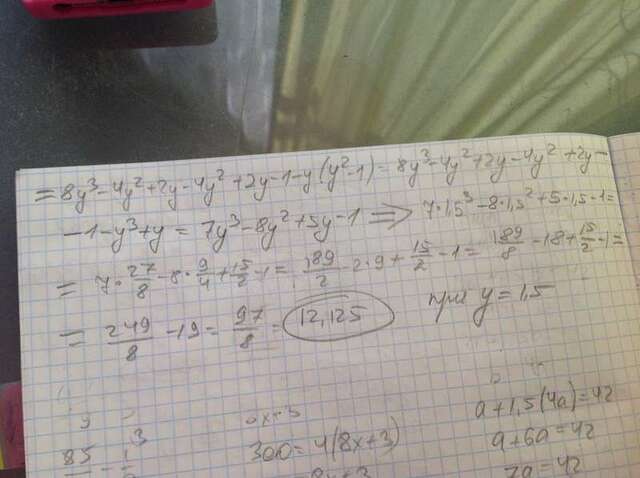 = 8y³-4y²+2y-4y²+2y-1-y(y²-1)= 8y³-4y²+2y-4y²+2y-
-1-y³+y = 7y³-8y²+5y-1 => 7·1,5³-8·1,5²+5·1,5-1=
= 7·27/8-8·9/4+15/2-1= 189/2-2·9+15/2-1= 189/8-18+15/2-1=
= 249/8-19= 97/8= 12,125 при y=1,5
a+1,5(4a)=42
300=4(8x+3) a+6a=42
85 3 7a=42